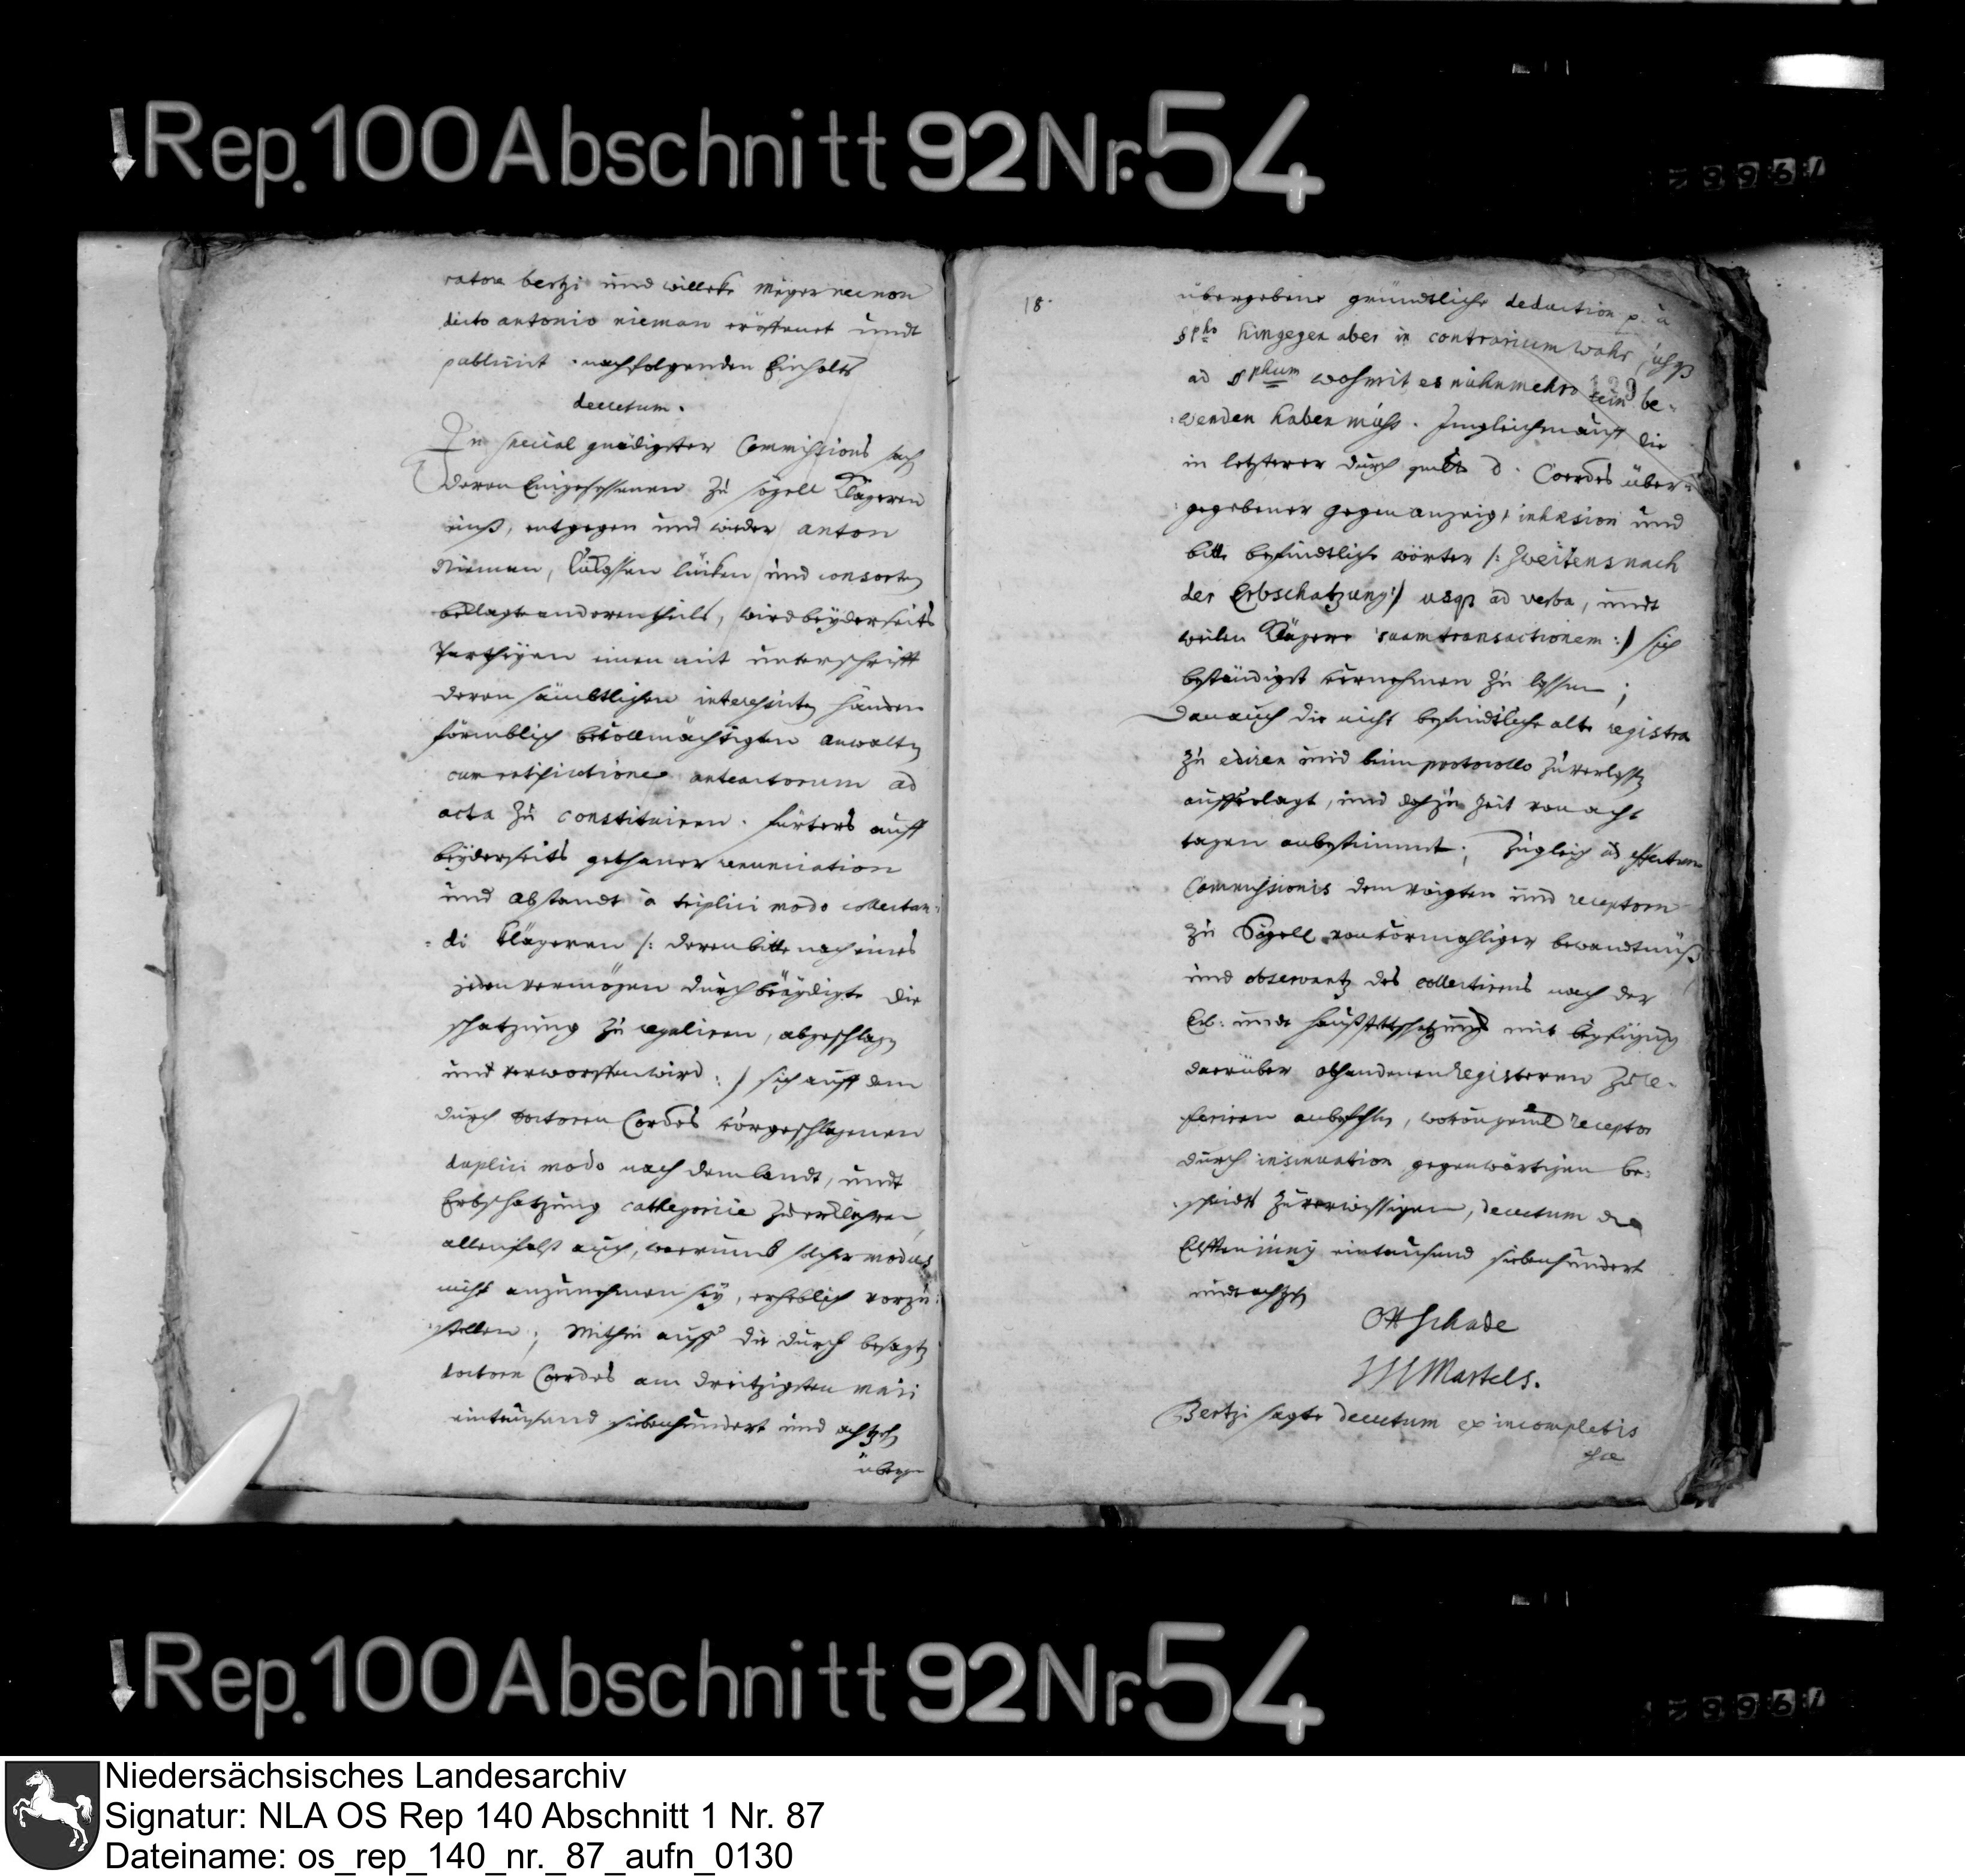 Rep. 100 Abschnitt 92 Nr. 54
ratore bertzi und willeke meyer necnon
dicto antonio nieman eröffenet undt
publicirt nachfolgenden Einhalts
decretum.
In special gnädigster Commissions sach
deren Eingesessenen zu sögell Klägeren
einß, entgegen und wieder anton
Nieman, lücken und consorten
beklagte anderentheils, wird beyderseits
Partheyen einen mit unterschrifft
deren sämbtlichen interessirten händen
förmblich bevollmächtigten anwalten
cum ratificatione anteactorum ad
acta zu constituiren. fürters auff
beyderseits gethaner renunciation
und abstandt à triplici modo collectan-
di klägeren /: deren bitte nach eines
jeden vermögen durch beäydigte die
schatzung zu reguliren, abgeschlagen
und verworffen wird :/ sich auff dem
durch doctoren Cordes vorgeschlagenen
duplici modo nach dem landt, undt
Erbschatzung cathegoricè zu erklähren
allenfalß auch, waerumb solcher modus
nicht anzunehmen sey, erheblich vorzu-
stellen; Mithin auff die durch besagten
doctoren Cordes am dreitzigsten maii
eintausend siebenhundert und achtzehn
überge
18.
übergebene gründtliche deduction p. à
§pho hingegen aber in contrarium wahr, usq
ad §phum wohmit es nuhnmehro sein be-
129
wenden haben müß. Imgleichen auff die
in letzterer durch d. Coerdes über-
gegebener gegenanzeig, inhaesion und
bitt befindtliche wörter /: zweitens nach
der Erbschatzung :/ usq ad verba, undt
weilen Klägere suam transactionem :/ sich
beständigst vernehmen zu lassen;
Dan auch die nicht befindtliche alte registra
zu ediren und beim protocollo zu verlassen
aufferlagt, und darzu zeit von acht
tagen anbestimmt; Zugleich ad effectum
Commissionis dem voigten und receptorn
zu Sögell von vormahliger bewandtnüß
und observantz des collectirens nach der
Erb: undt haußstettschatzung mit beyfügung
darüber obhandenen Registeren zu re-
feriren anbefohlen, wovon receptor
durch insinuation gegenwärtigen be-
scheidts zu verwissigen, decretum den
Elfften juny eintausend siebenhundert
undt achtzehn
Ott Schade
Martels.
Bertzi sagte decretum ex incompletis
esse
Rep. 100 Abschnitt 92 Nr. 54
Niedersächsisches Landesarchiv
Signatur: NLA OS Rep 140 Abschnitt 1 Nr. 87
Dateiname: os_rep_140_nr._87_aufn_0130